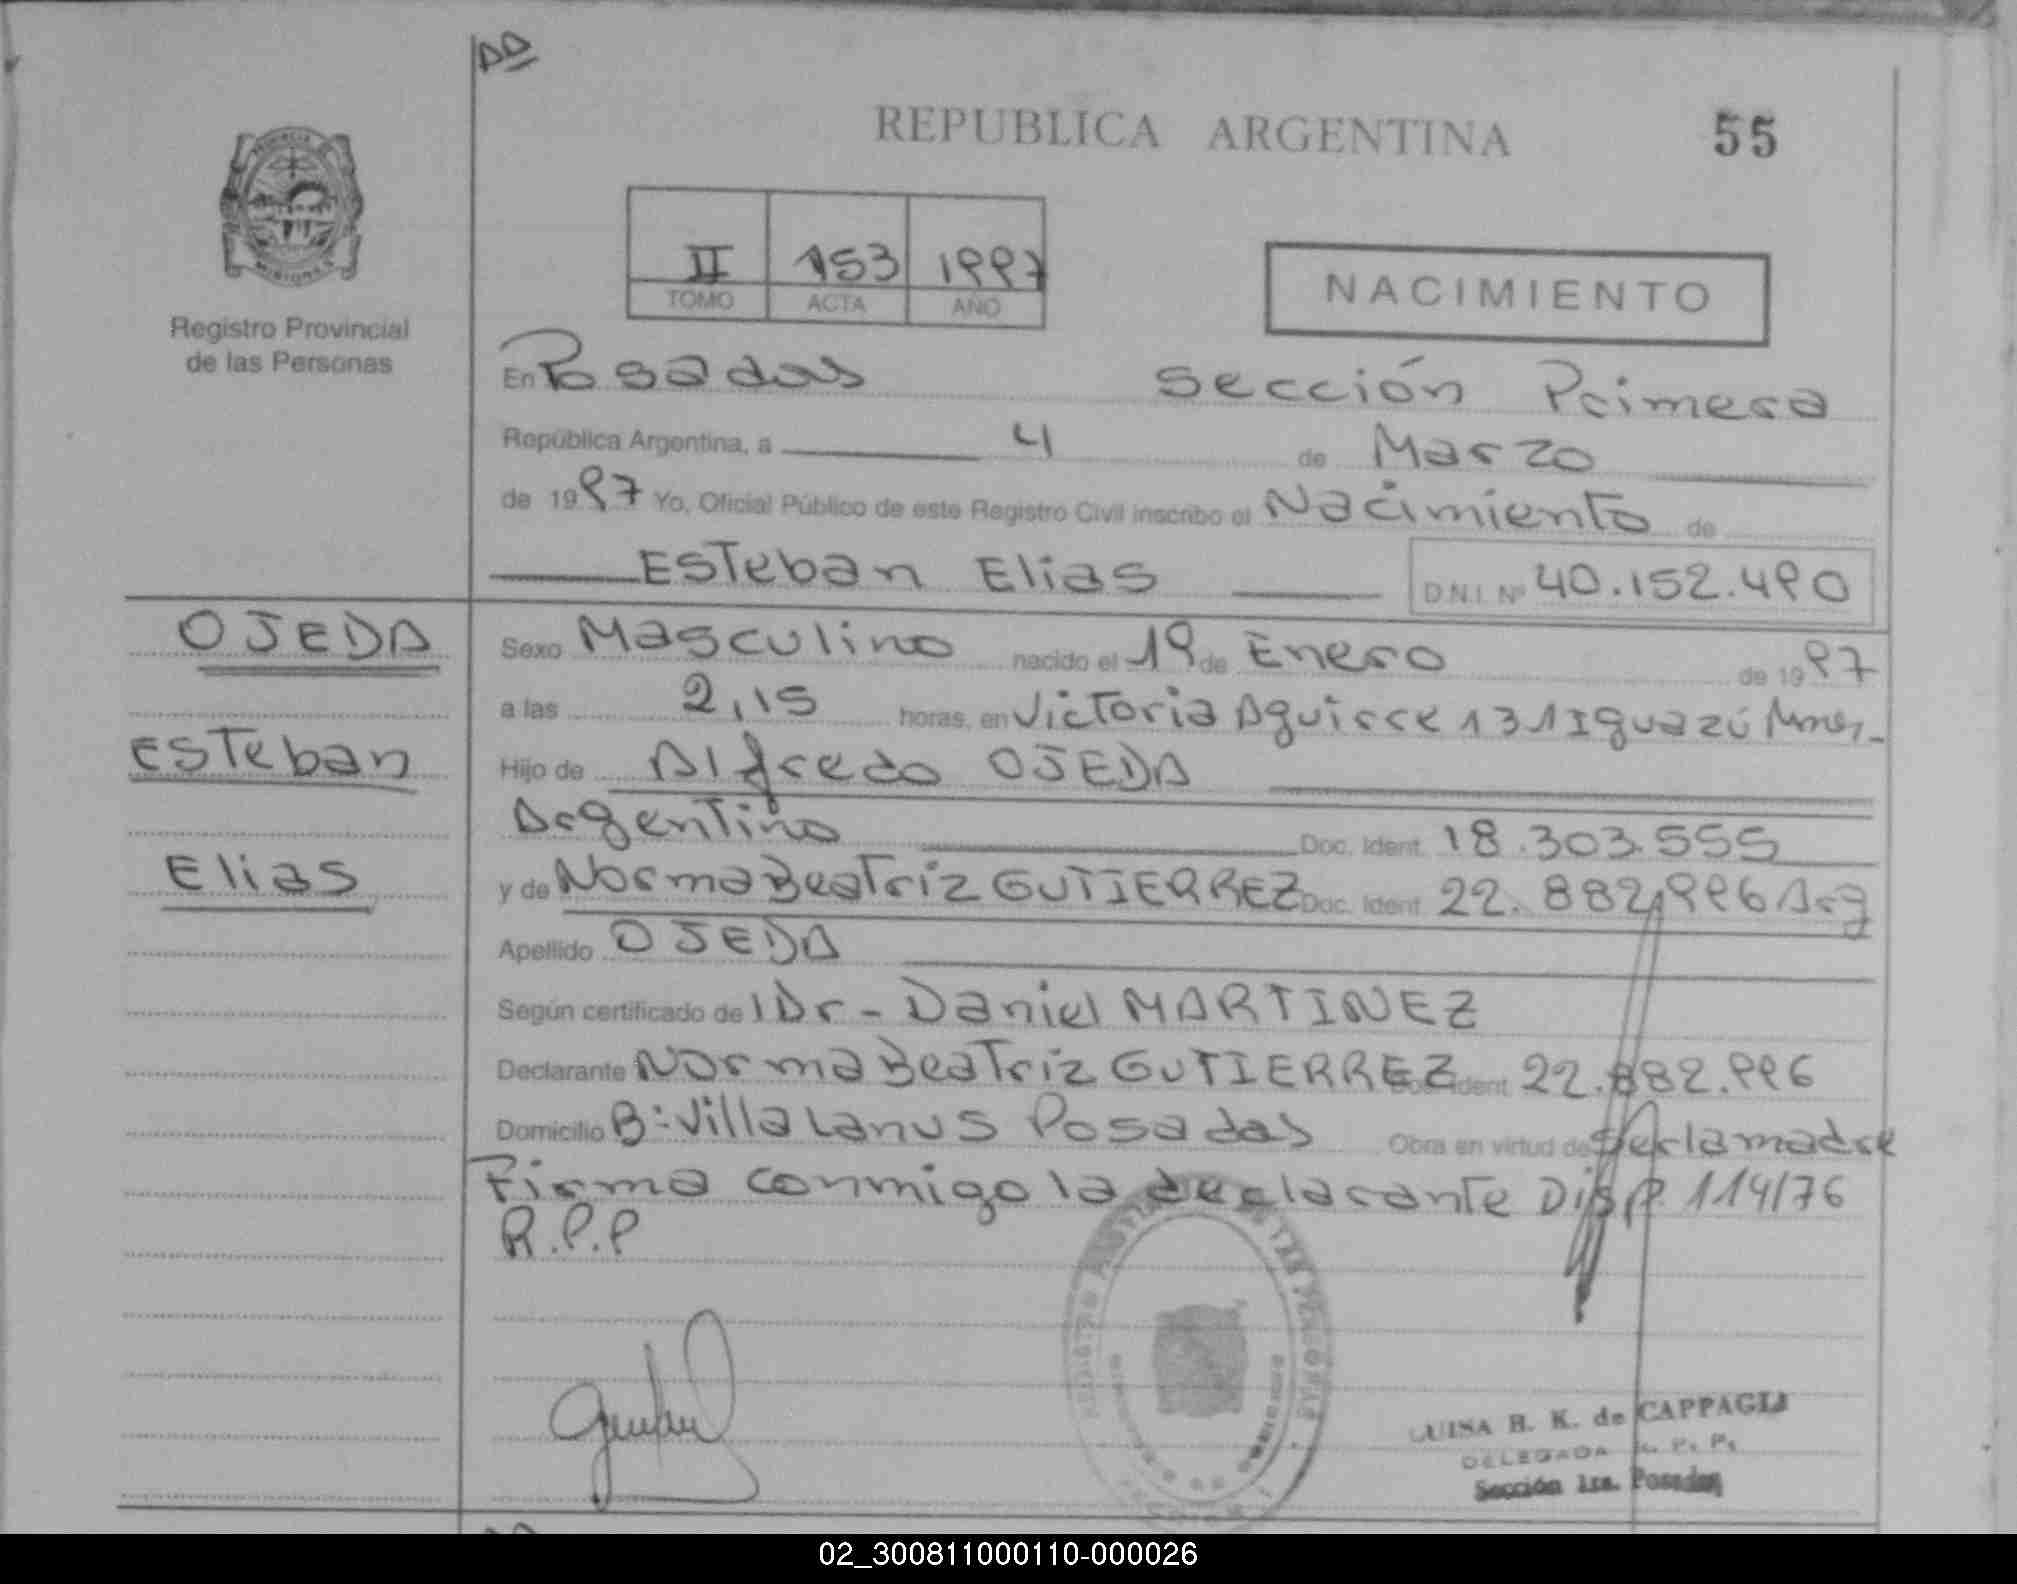 AA
REPUBLICA ARGENTINA
55
PROVINCIA
MISIONES
Registro Provincial
de las Personas
II 153 1997
TOMO ACTA AÑO
NACIMIENTO
En Posadas Sección Primera
República Argentina, a 4 de Marzo
de 1997 Yo, Oficial Público de este Registro Civil inscribo el Nacimiento de
Esteban Elias D.N.I. Nº 40.152.490
OJEDA
Esteban
Elias
Sexo Masculino nacido el 19 de Enero de 1997
a las 2,15 horas, en Victoria Aguirre 131 Iguazú Mnes,-
Hijo de Alfredo OJEDA
Argentino Doc. Ident. 18.303.555
y de Norma Beatriz GUTIERREZ Doc. Ident. 22.882.996 Arg
Apellido OJEDA
Según certificado de l Dr - Daniel MARTINEZ
Declarante Norma Beatriz GUTIERREZ Doc. Ident. 22.882.996
Domicilio B: Villa Lanus Posadas Obra en virtud de ser la madre
Firma conmigo la declarante Disp. 114/76
R.P.P
LUISA B. K. de CAPPAGLI
DELEGADA R. P. P.
Sección 1ra. Posadas
02_300811000110-000026